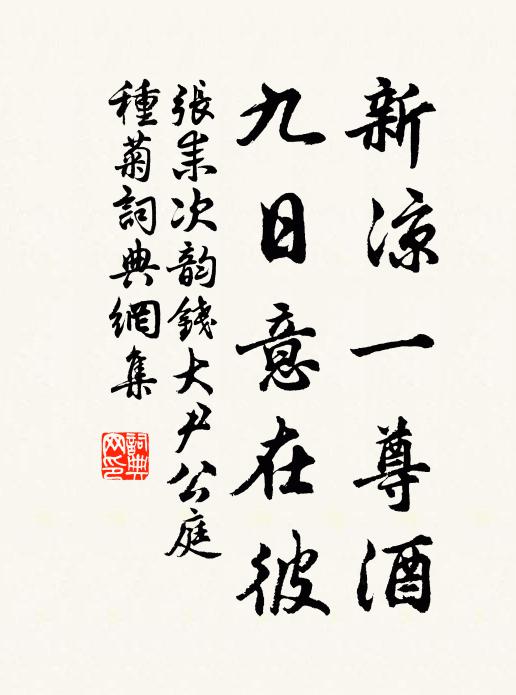 新涼一尊酒
九日意在彼
張耒次韵錢大尹公庭
種菊詞典網集
詞典网印